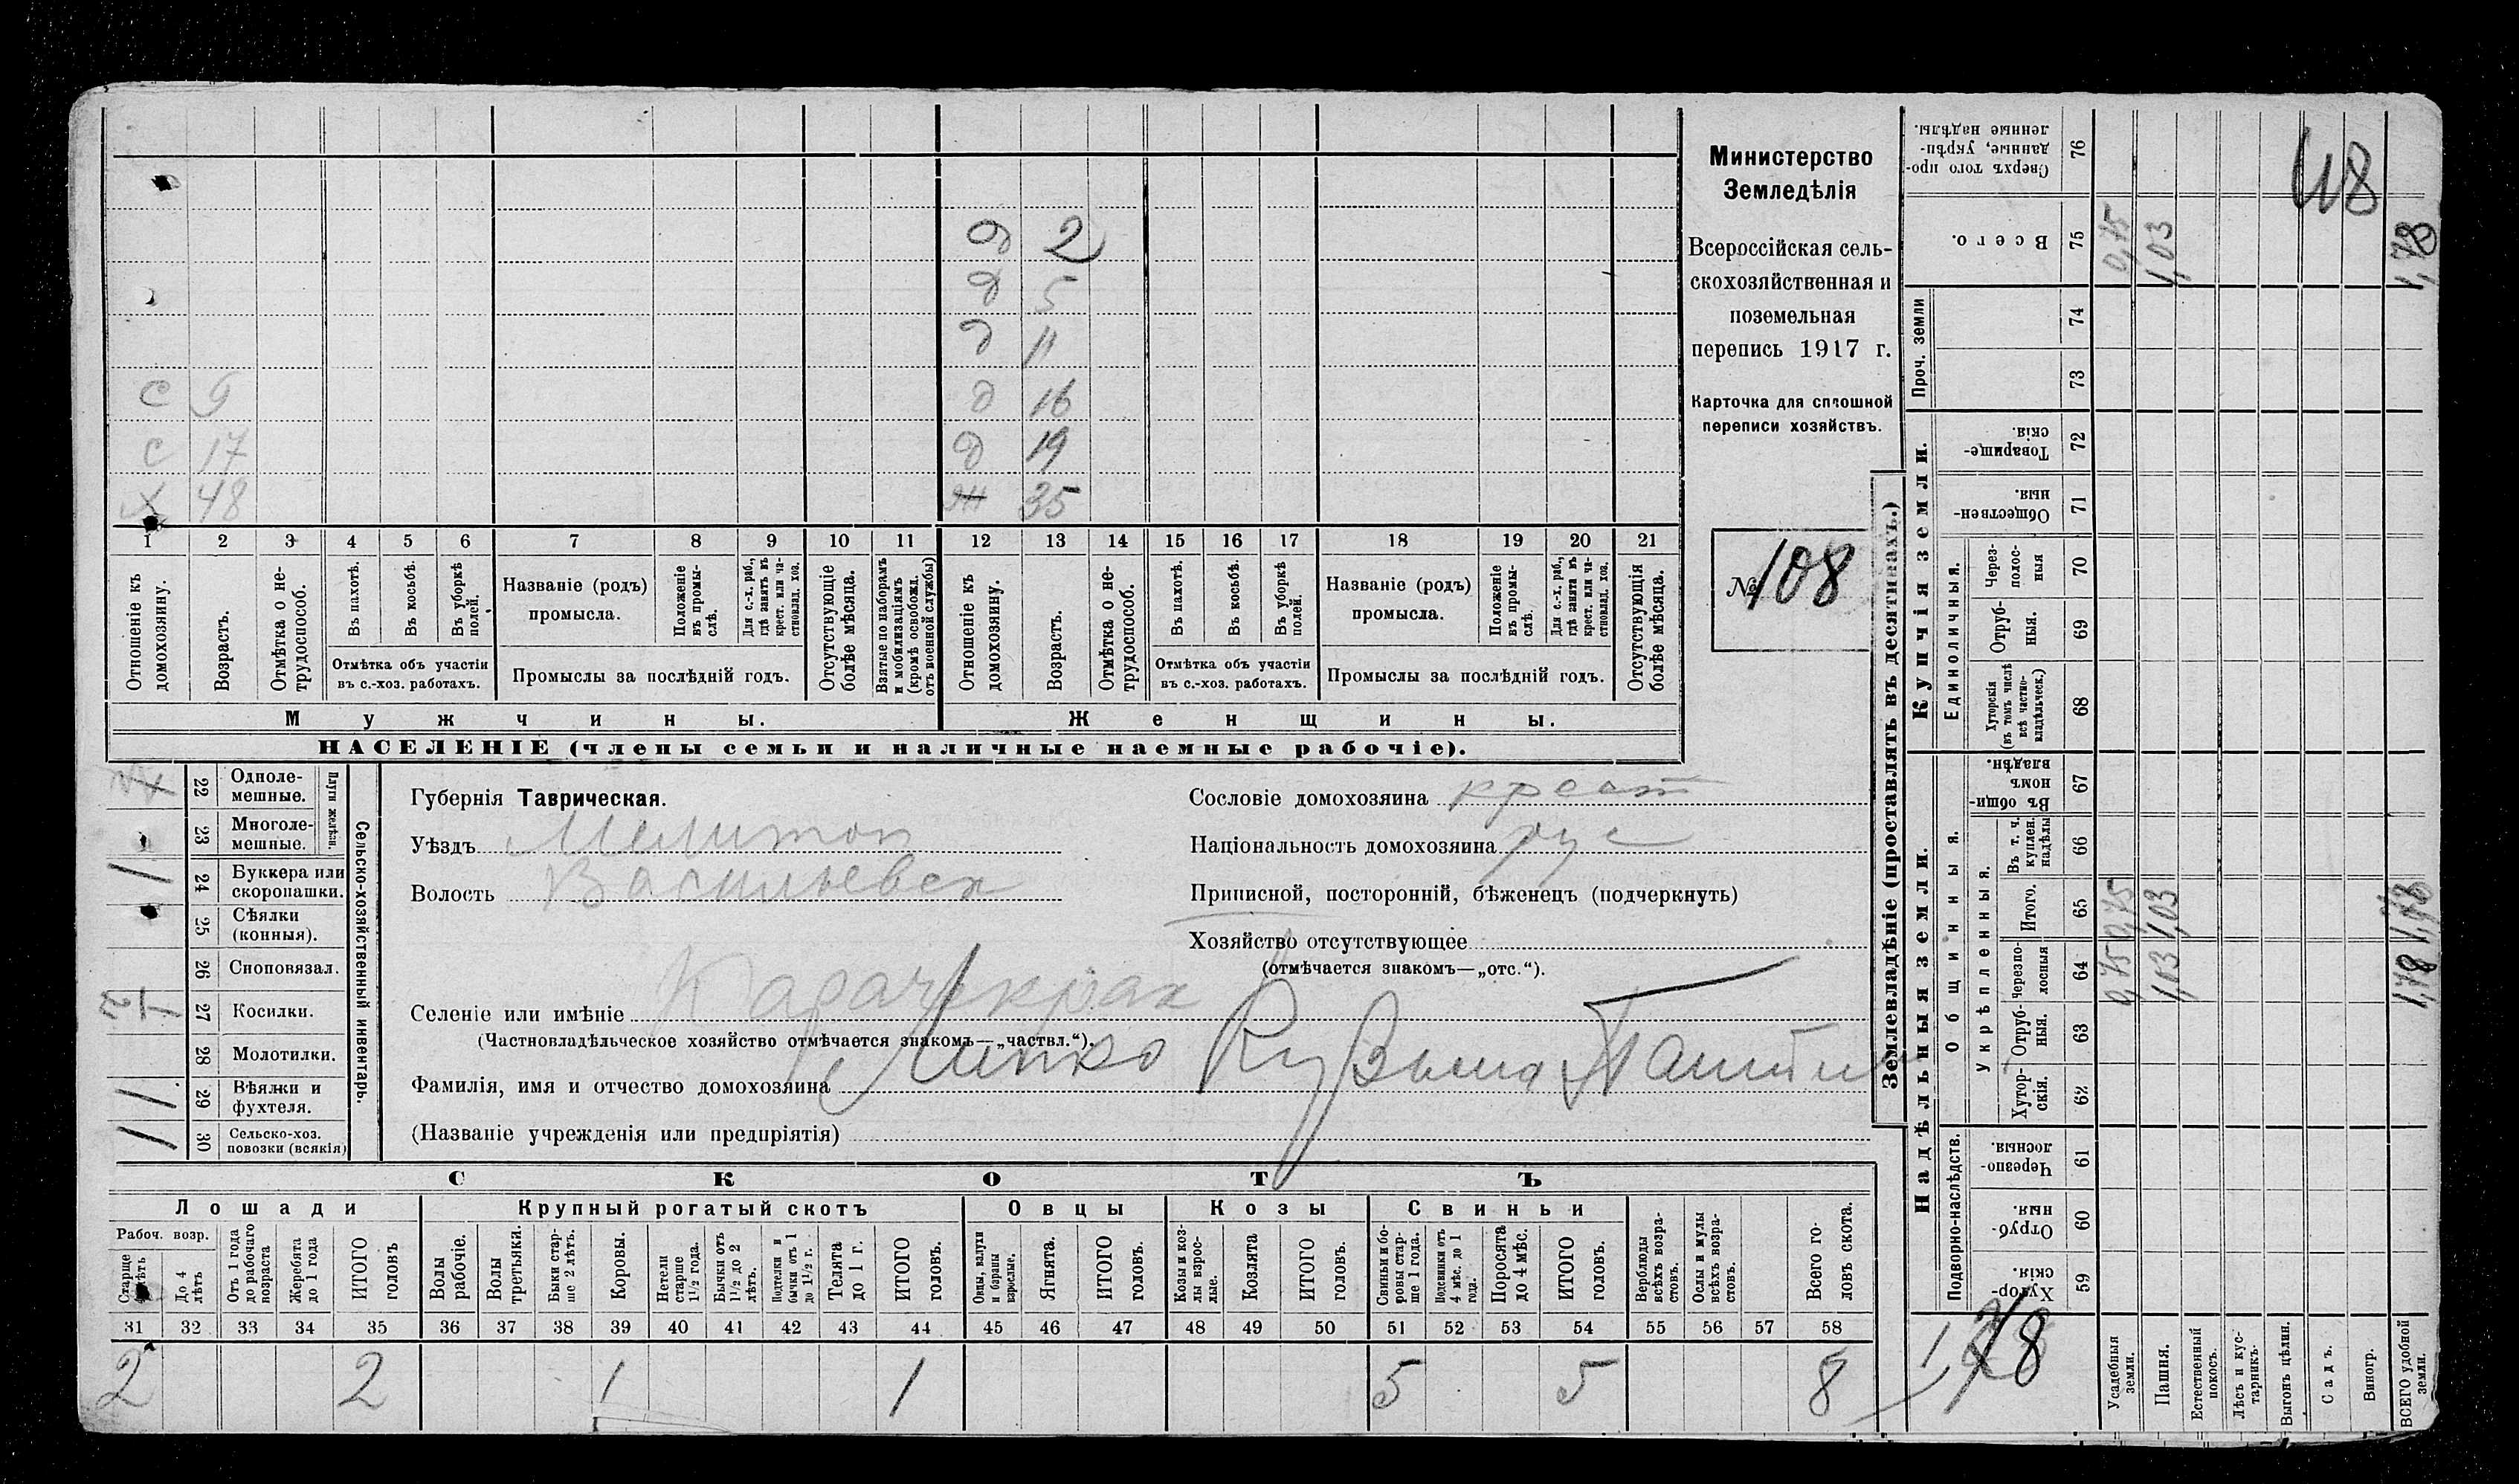 Министерство
Земледѣлія
Всероссійская сель-
скохозяйственная и
поземельная
перепись 1917 г.
Карточка для сплошной
переписи хозяйствъ.
№ 108
д 2
д 5
д 11
с 9 д 16
с 17 д 19
х 48 ж 35
1 2 3 4 5 6 7 8 9 10 11 12 13 14 15 16 17 18 19 20 21
Отношеніе къ домохозяину.
Возрастъ.
Отмѣтка о не-трудоспособ.
Въ пахотѣ.
Въ косьбѣ.
Въ уборкѣ полей.
Отмѣтка объ участіи
въ с.-хоз. работахъ.
Названіе (родъ)
промысла.
Положеніе въ промы-слѣ.
Для с.-х. раб., гдѣ занятъ въ крест. или ча-стновлад. хоз.
Промыслы за послѣдній годъ.
Отсутствующіе болѣе мѣсяца.
Взятые по наборамъ и мобилизаціямъ (кромѣ освобожд. отъ военной службы)
Отношеніе къ домохозяину.
Возрастъ.
Отмѣтка о не-трудоспособ.
Въ пахотѣ.
Въ косьбѣ.
Въ уборкѣ полей.
Отмѣтка объ участіи
въ с.-хоз. работахъ.
Названіе (родъ)
промысла.
Положеніе въ промы-слѣ.
Для с.-х. раб., гдѣ занята въ крест. или ча-стновлад. хоз.
Промыслы за послѣдній годъ.
Отсутствующія болѣе мѣсяца.
Мужчины. Женщины.
НАСЕЛЕНІЕ (члены семьи и наличные наемные рабочіе).
Сельско-хозяйственный инвентарь.
Плуги желѣзн.
22 Одноле-мешные.
23 Многоле-мешные.
24 Буккера или скоропашки. 1
25 Сѣялки (конныя).
26 Сноповязал.
27 Косилки.
28 Молотилки.
29 Вѣялки и фухтеля.
30 Сельско-хоз. повозки (всякія)
Губернія Таврическая.
Уѣздъ Мелитоп
Волость Васильевск
Сословіе домохозяина крест
Національность домохозяина рус
Приписной, посторонній, бѣженецъ (подчеркнуть)
Хозяйство отсутствующее
(отмѣчается знакомъ—„отс.“).
Селеніе или имѣніе Карачекрак
(Частновладѣльческое хозяйство отмѣчается знакомъ—„частвл.“).
Фамилія, имя и отчество домохозяина Липко Кузьма
(Названіе учрежденія или предпріятія)
СКОТЪ
Лошади Крупный рогатый скотъ Овцы Козы Свиньи
Рабоч. возр.
Старше 4 лѣтъ
До 4 лѣтъ
Отъ 1 года до рабочаго возраста
Жеребята до 1 года
ИТОГО головъ
Волы рабочіе.
Волы третьяки.
Быки стар-ше 2 лѣтъ.
Коровы.
Нетели старше 1½ года.
Бычки отъ 1½ до 2 лѣтъ.
Подтелки и бычки отъ 1 до 1½ г.
Телята до 1 г.
ИТОГО головъ.
Овцы, валухи и бараны взрослые.
Ягнята.
ИТОГО головъ.
Козы и коз-лы взрос-лые.
Козлята
ИТОГО головъ.
Свиньи и бо-ровы стар-ше 1 года.
Подсвинки отъ 4 мѣс. до 1 года.
Поросята до 4 мѣс.
ИТОГО головъ.
Верблюды всѣхъ возра-стовъ.
Ослы и мулы всѣхъ возра-стовъ.
Всего го-ловъ скота.
31 32 33 34 35 36 37 38 39 40 41 42 43 44 45 46 47 48 49 50 51 52 53 54 55 56 57 58
2 2 1 1 5 5 8
Землевладѣніе (проставлять въ десятинахъ.)
Надѣльныя земли. Купчія земли. Проч. земли
Подворно-наслѣдств.
Общинныя.
Укрѣпленныя.
Единоличныя.
59 Хутор-скія.
60 Отруб-ныя.
61 Черезпо-лосныя.
62 Хутор-скія.
63 Отруб-ныя.
64 Черезпо-лосныя 0,75 1,03 1,78
65 Итого. 0,75 1,03 1,78
66 Въ т. ч. куплен. надѣлы
67 Въ общи-номъ владѣн.
68 Хуторскія (въ томъ числѣ всѣ частно-владѣльческ.)
69 Отруб-ныя.
70 Через-полос-ныя
71 Обществен-ныя.
72 Товарище-скія.
73
74
75 Всего. 0,75 1,03 1,78
76 Сверхъ того про-данные, укрѣп-ленные надѣлы.
Усадебныя земли.
Пашня.
Естественный покосъ.
Лѣсъ и кус-тарникъ.
Выгонъ цѣлин.
Садъ.
Виногр.
ВСЕГО удобной земли.